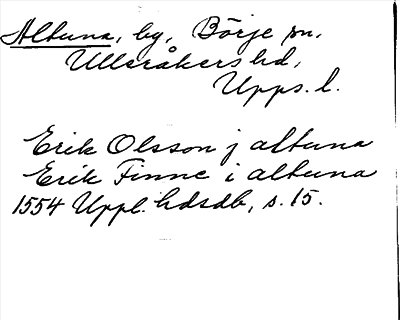 Altuna, by, Börje sn,
Ulleråkers hd,
Upps. l.
Erik Olsson j altuna
Erik Finne i altuna
1554 Uppl. hdsdb, s. 15.